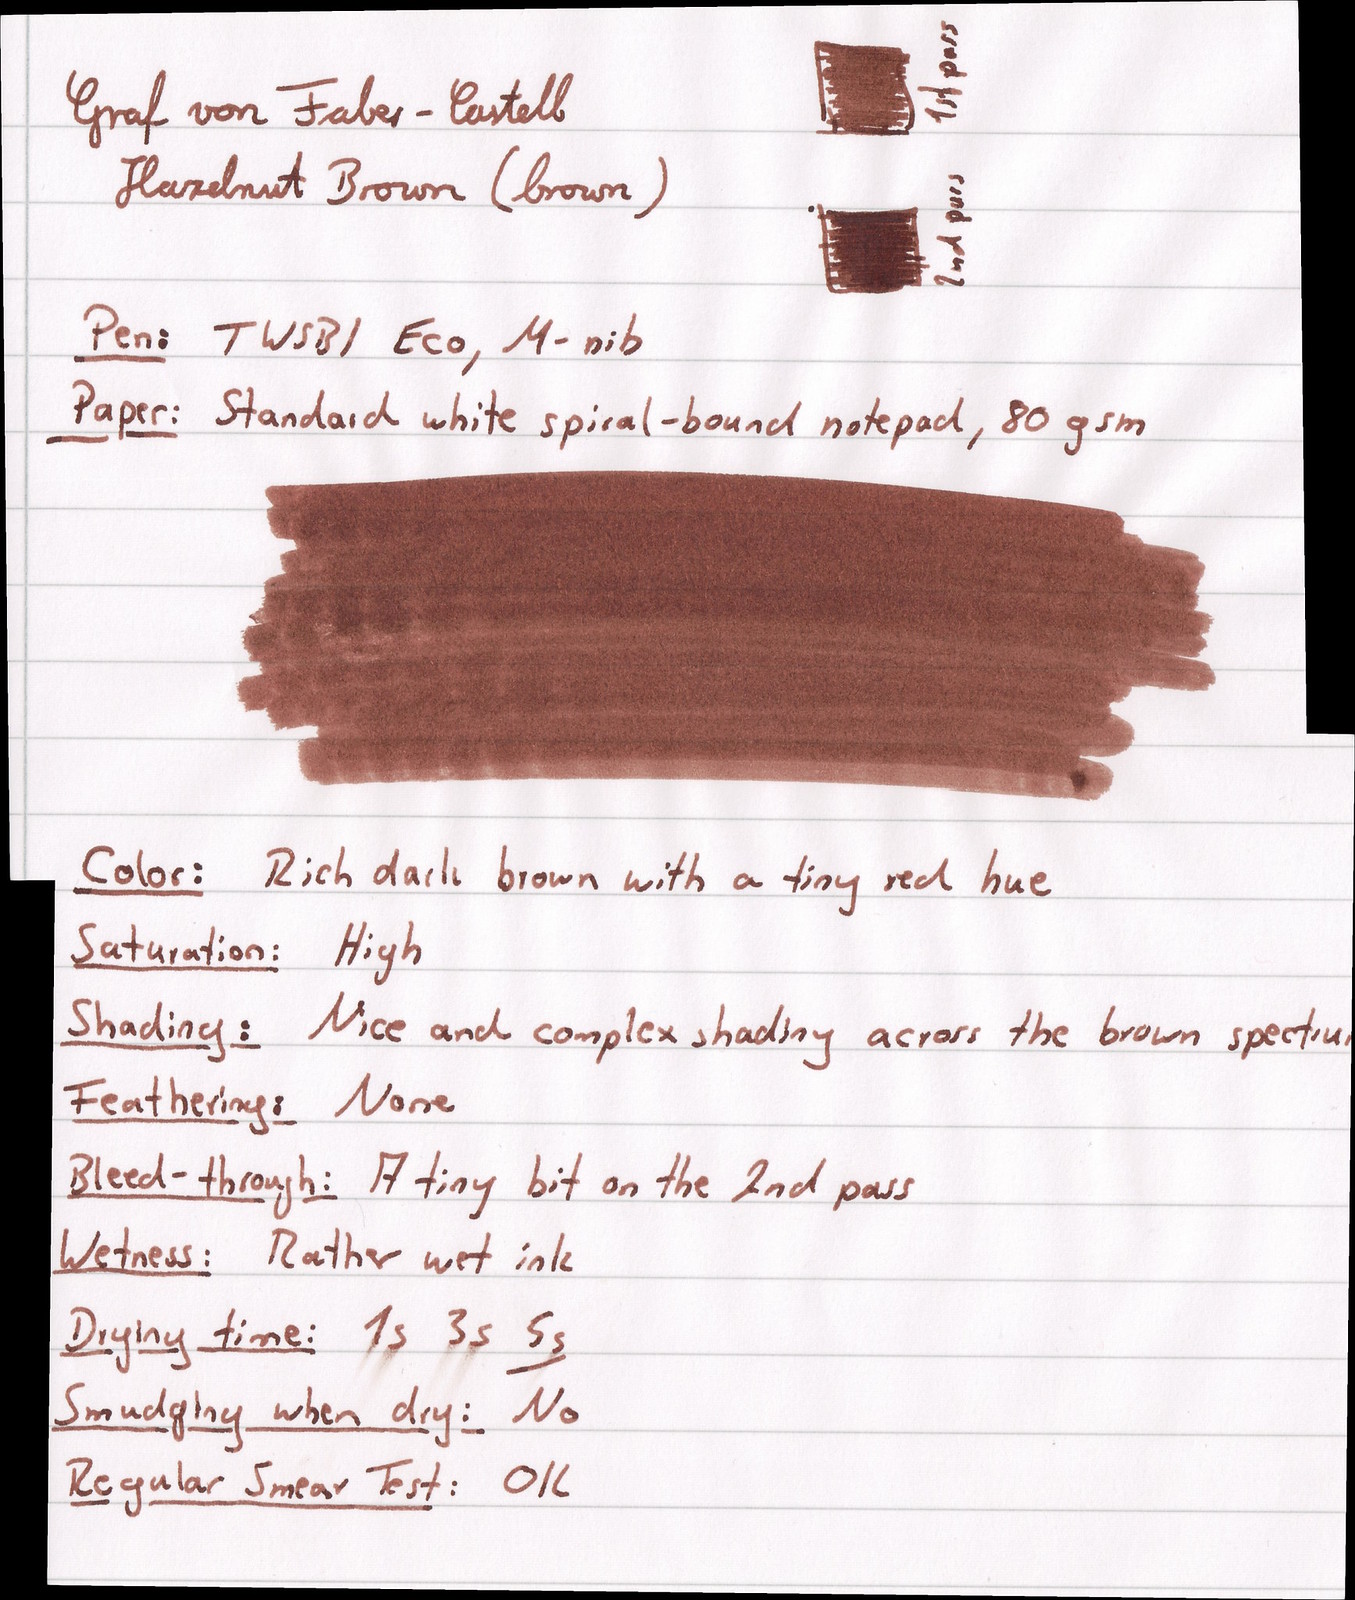 Graf von Faber-Castell
Hazelnut Brown (brown)
1st pass
2nd pass
Pen: TWSBI Eco, M-nib
Paper: Standard white spiral-bound notepad, 80 gsm
Color: Rich dark brown with a tiny red hue
Saturation: High
Shading: Nice and complex shading across the brown spectru
Feathering: None
Bleed-through: A tiny bit on the 2nd pass
Wetness: Rather wet ink
Drying time: 1s 3s 5s
Smudging when dry: No
Regular Smear Test: OK